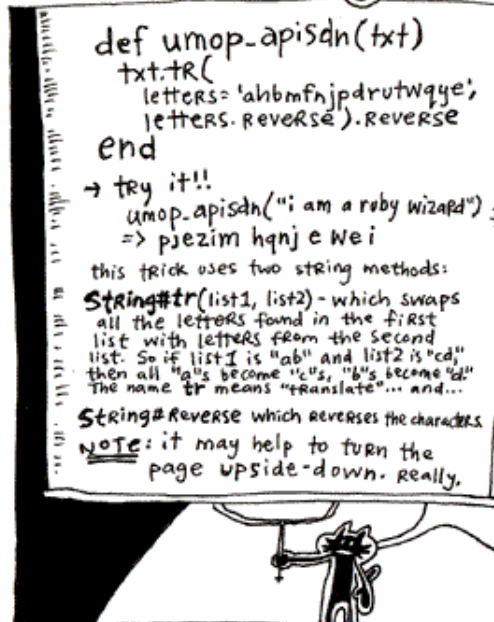 def umop_apisdn(txt)
txt.tr(
letters= 'ahbmfnjpdrutwqye',
letters.reverse).reverse
end
→ try it!!
umop_apisdn("i am a ruby wizard")
=> pjezim hqnj e we i
this trick uses two string methods:
String#tr(list1, list2) - which swaps
all the letters found in the first
list with letters from the second
list. So if list1 is "ab" and list2 is "cd,"
then all "a"s become "c"s, "b"s become "d."
The name tr means "translate"... and...
String#reverse which reverses the characters.
NOTE: it may help to turn the
page upside-down. Really.